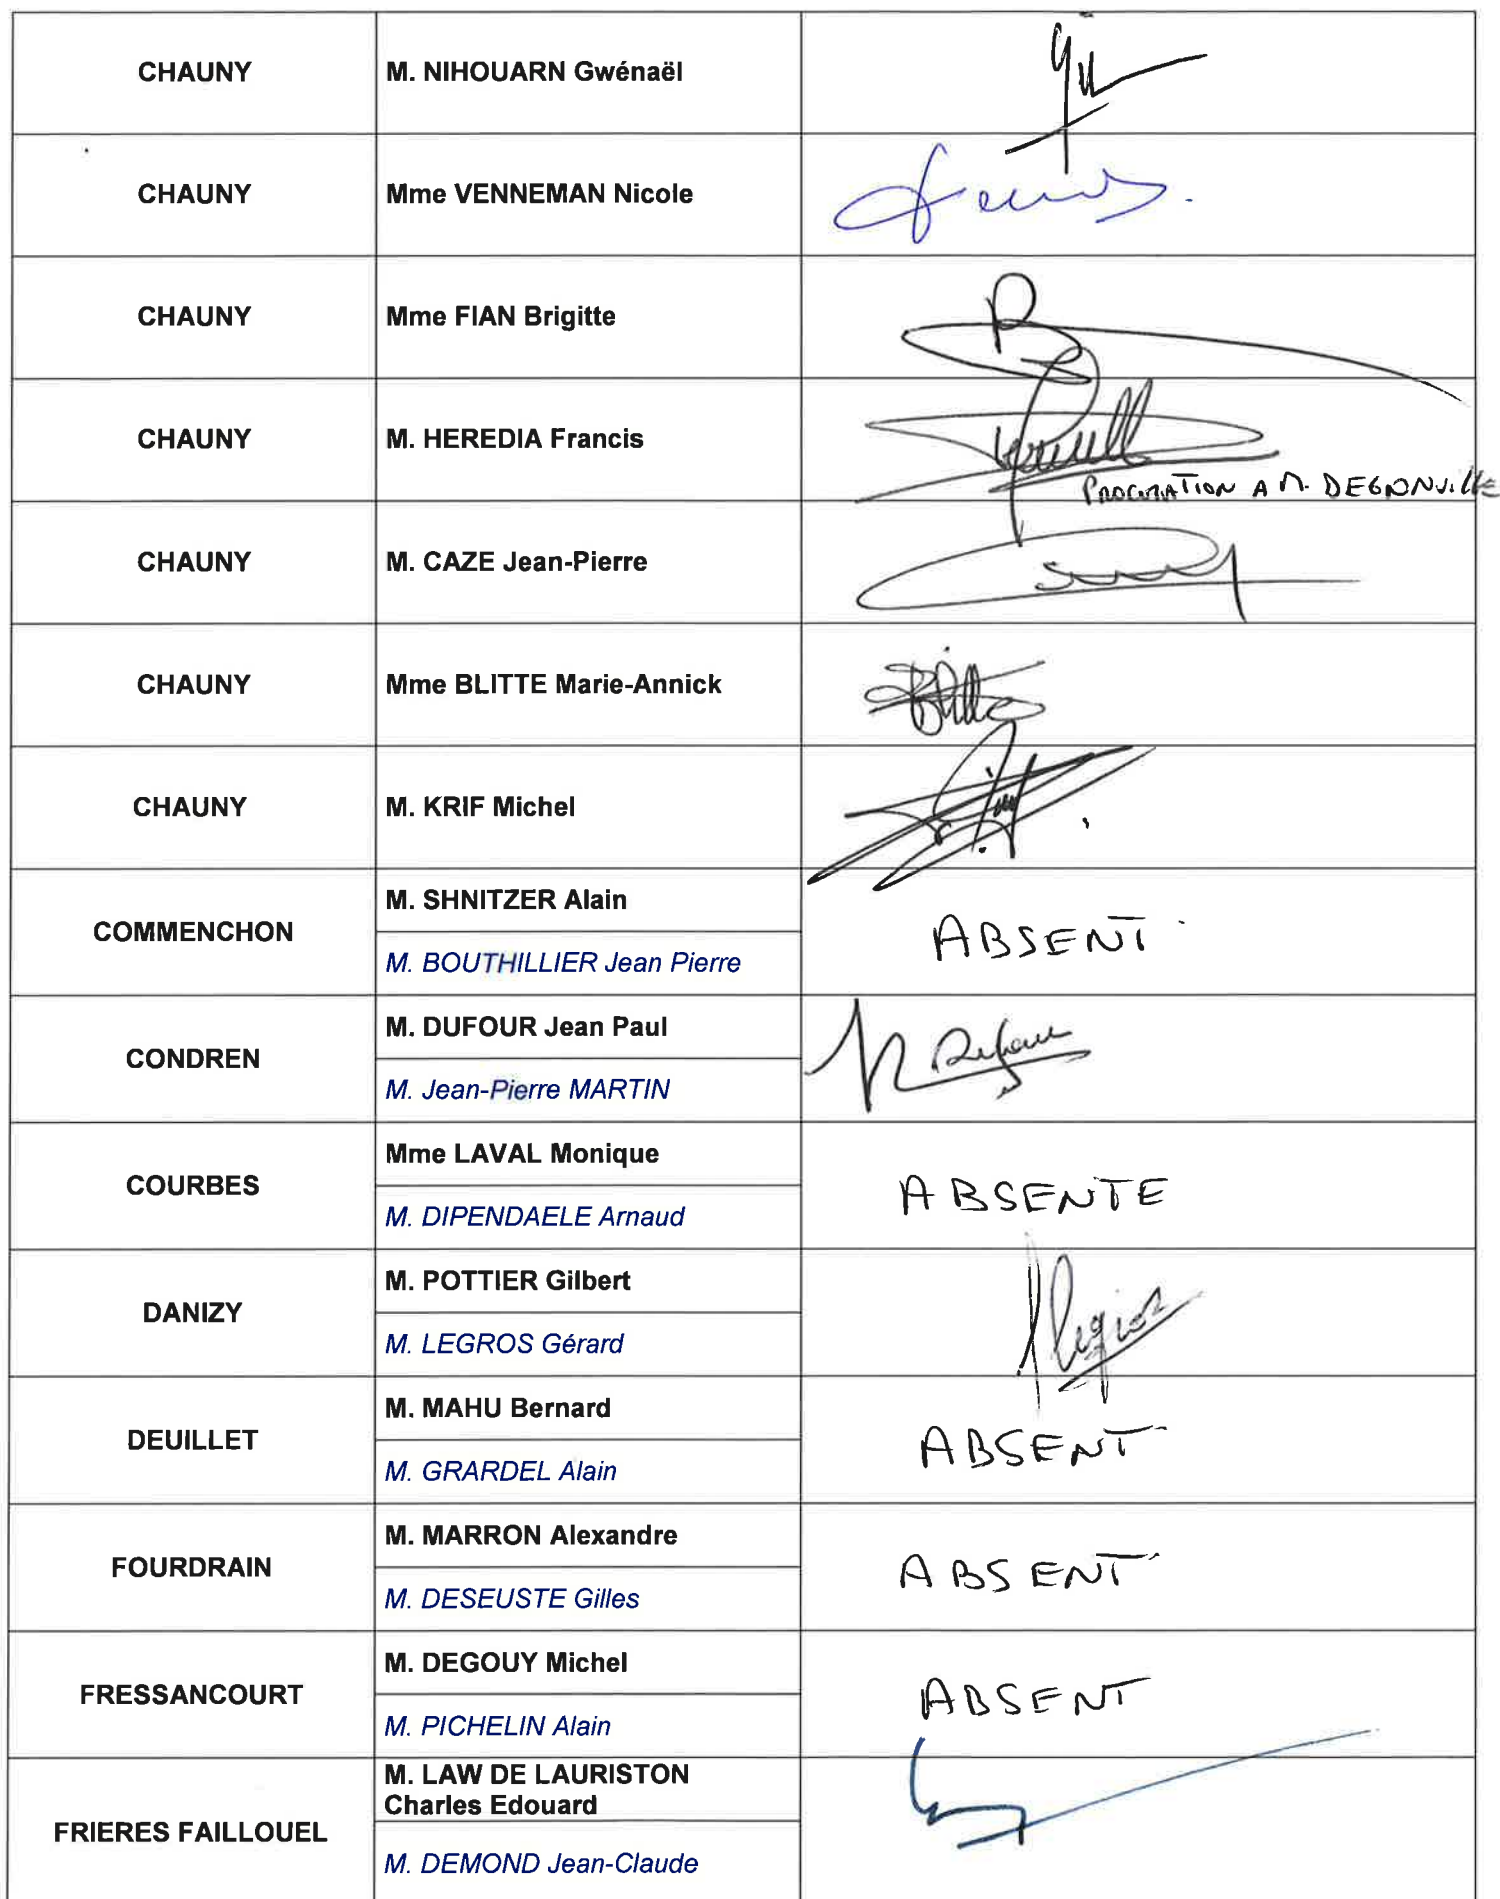 CHAUNY M. NIHOUARN Gwénaël
CHAUNY Mme VENNEMAN Nicole
CHAUNY Mme FIAN Brigitte
CHAUNY M. HEREDIA Francis
PROCURATION A M. DEGONVILLE
CHAUNY M. CAZE Jean-Pierre
CHAUNY Mme BLITTE Marie-Annick
CHAUNY M. KRIF Michel
COMMENCHON M. SHNITZER Alain ABSENT
M. BOUTHILLIER Jean Pierre
CONDREN M. DUFOUR Jean Paul Dufour
M. Jean-Pierre MARTIN
COURBES Mme LAVAL Monique ABSENTE
M. DIPENDAELE Arnaud
DANIZY M. POTTIER Gilbert
M. LEGROS Gérard Legros
DEUILLET M. MAHU Bernard ABSENT
M. GRARDEL Alain
FOURDRAIN M. MARRON Alexandre ABSENT
M. DESEUSTE Gilles
FRESSANCOURT M. DEGOUY Michel ABSENT
M. PICHELIN Alain
FRIERES FAILLOUEL M. LAW DE LAURISTON
Charles Edouard
M. DEMOND Jean-Claude